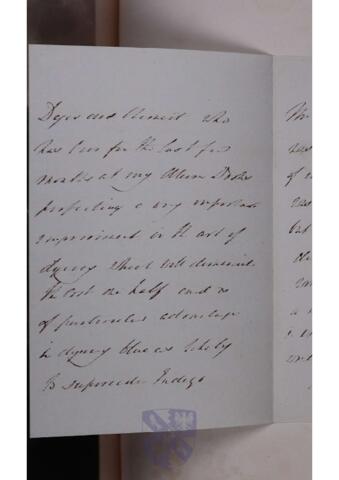 Dyer and Chemist who
has been for the last few
months at my Alum Works
perfecting a very important
improvement in the art of
dyeing which will diminish
the cost one half and is
of particular advantage
in dyeing blue as likely
to supersede Indigo